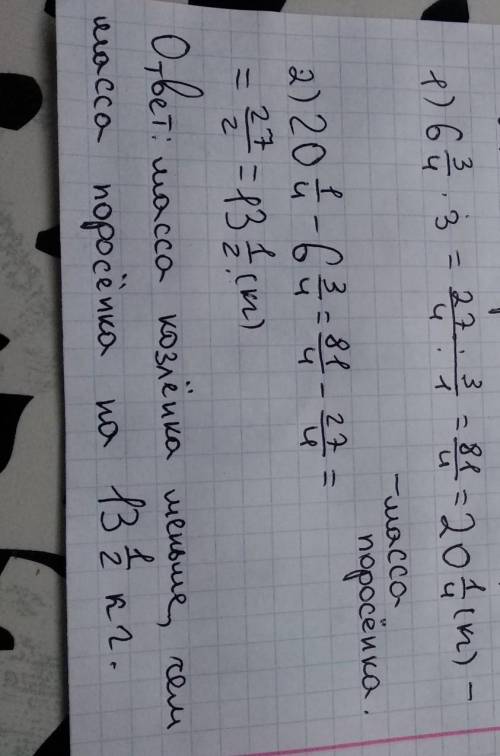 1) 6 3/4 · 3 = 27/4 · 3/1 = 81/4 = 20 1/4 (к) –
– масса
поросёнка.
2) 20 1/4 – 6 3/4 = 81/4 – 27/4 =
= 27/2 = 13 1/2 (к)
Ответ: масса козлёнка меньше, чем
масса поросёнка на 13 1/2 кг.